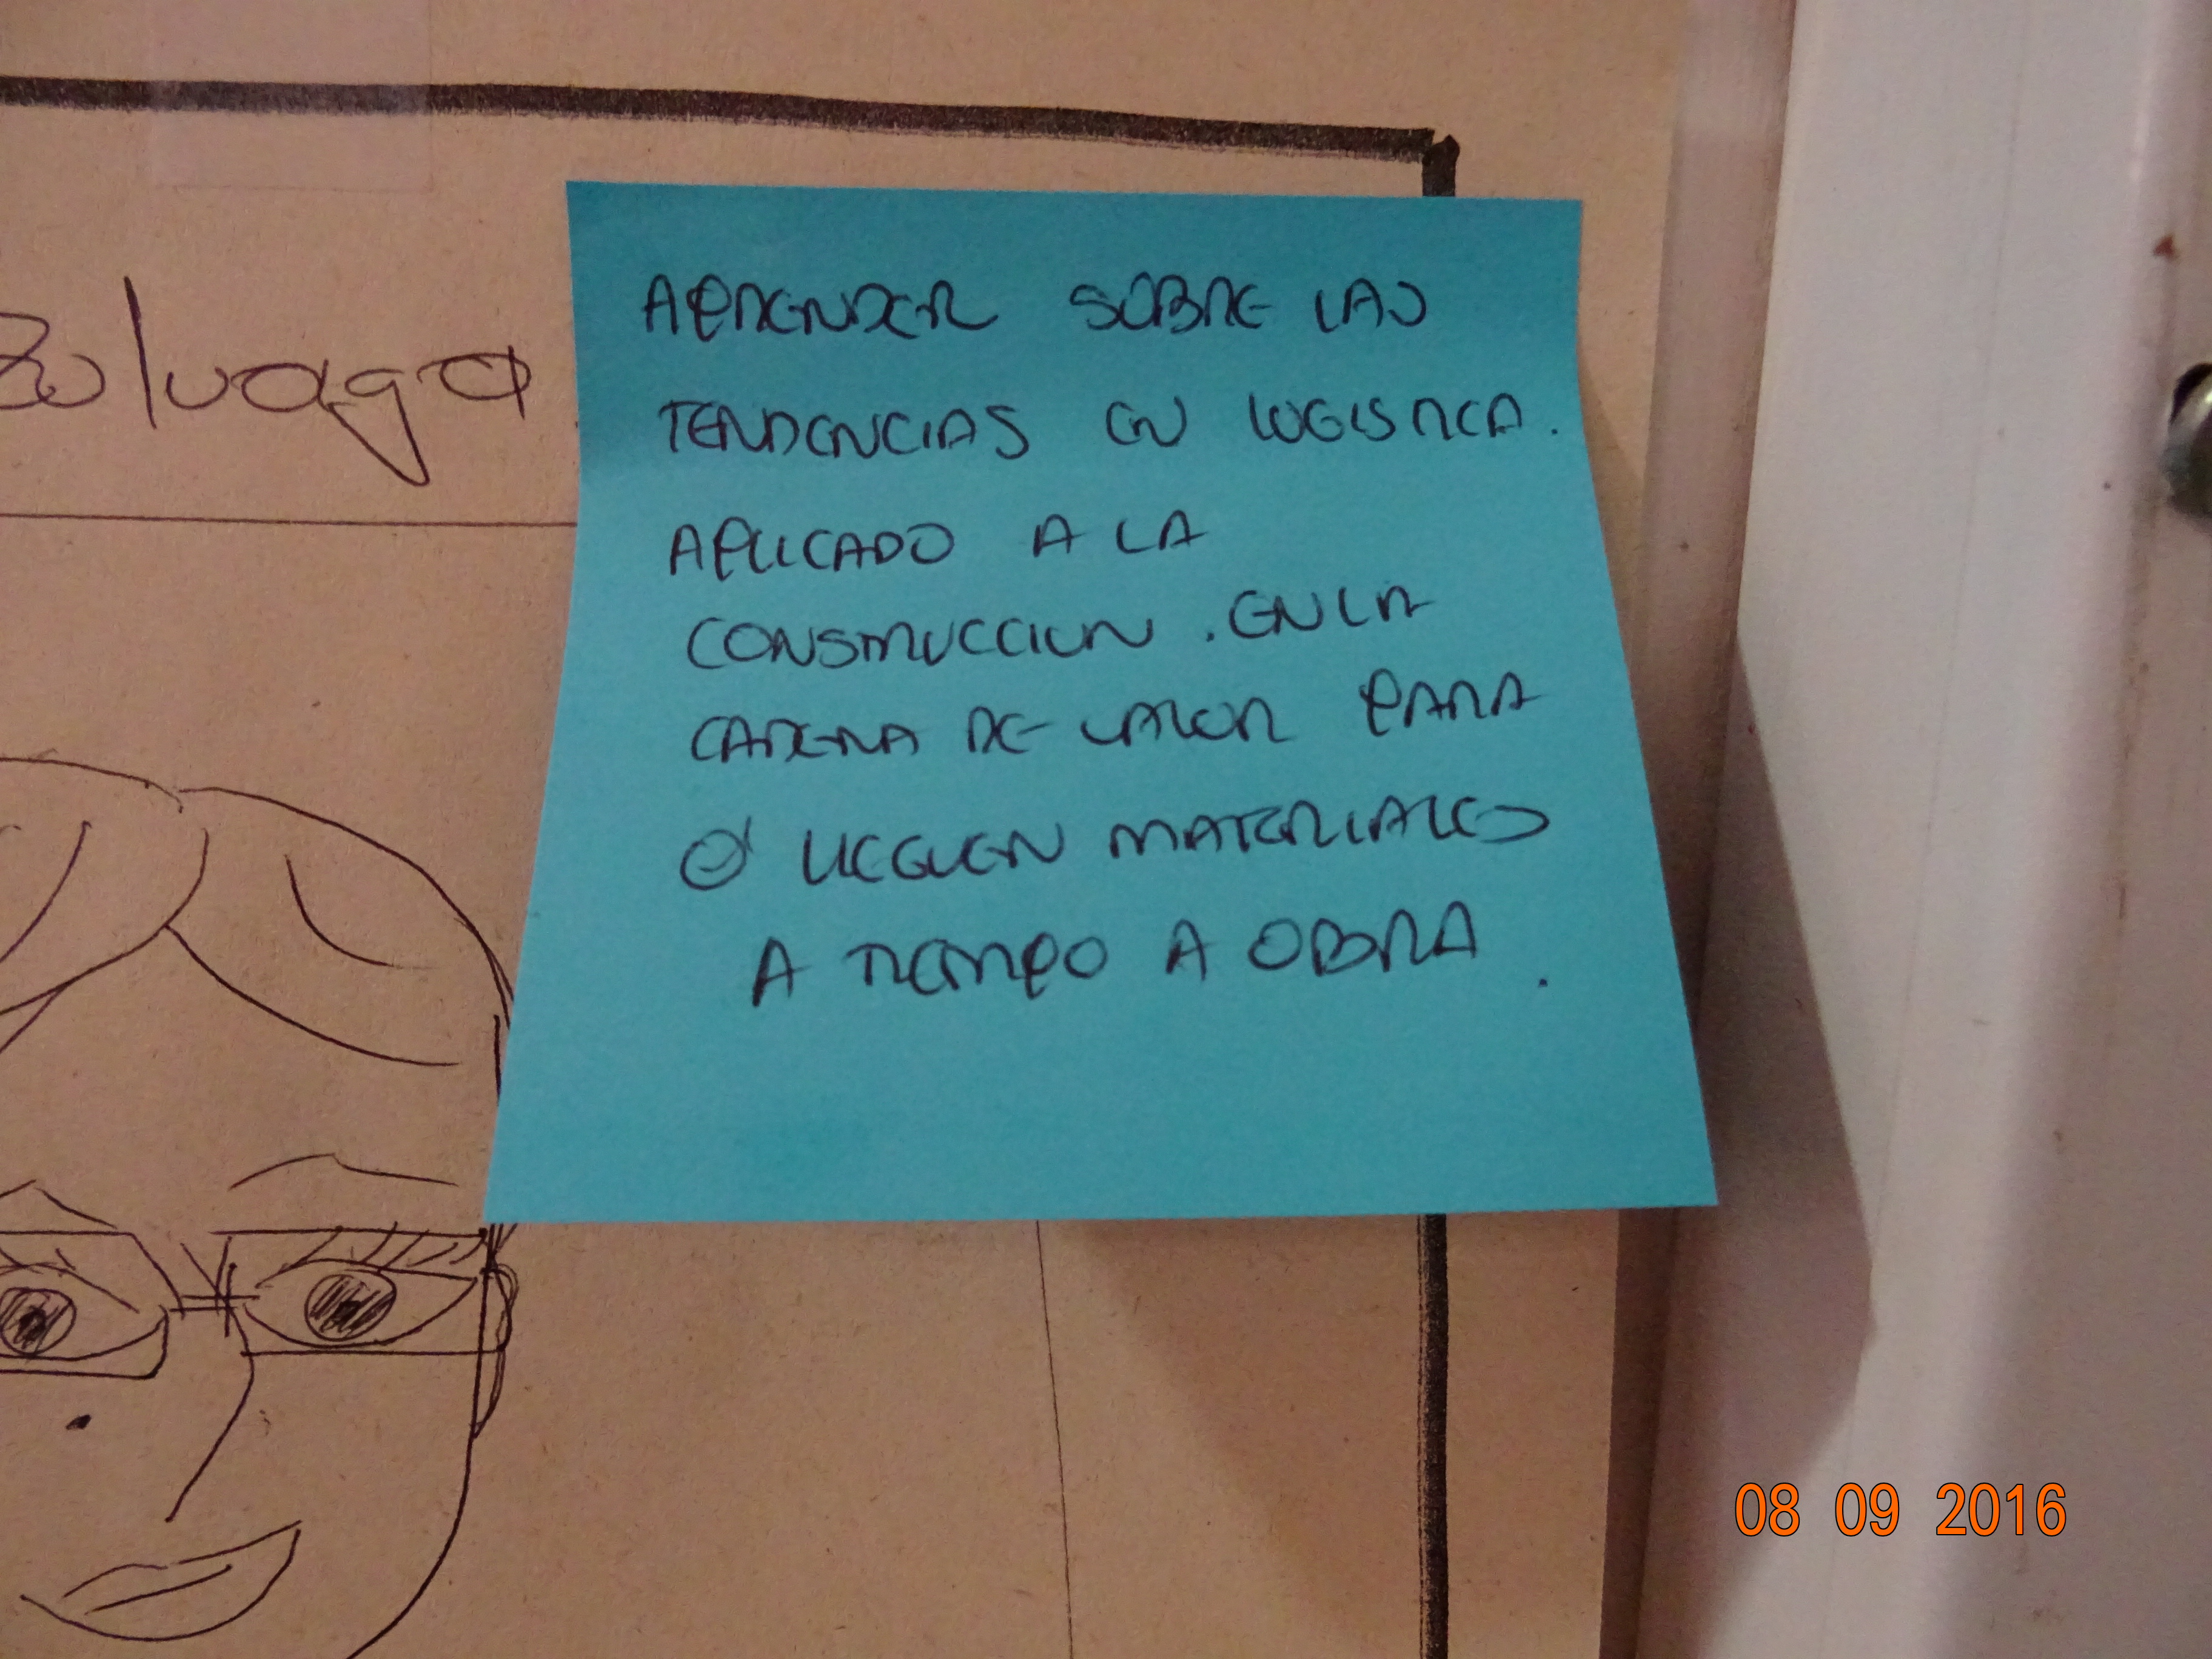 Zuluaga
APRENDER SOBRE LAS
TENDENCIAS EN LOGISTICA.
APLICADO A LA
CONSTRUCCION. EN LA
CADENA DE VALOR PARA
LLEGUEN MATERIALES
A TIEMPO A OBRA.
08 09 2016